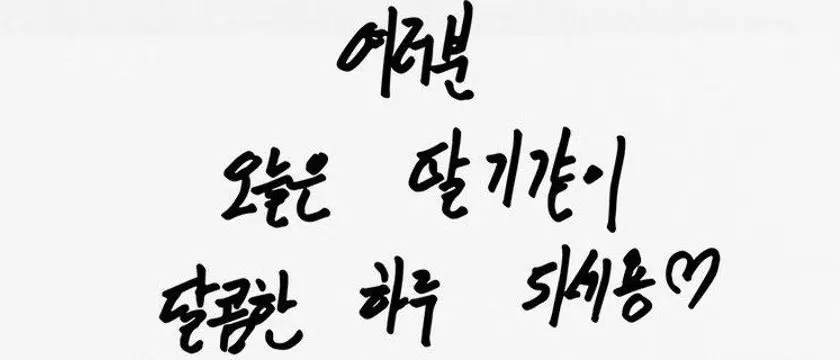 여러분
오늘은 딸기같이
달콤한 하루 되세용♡